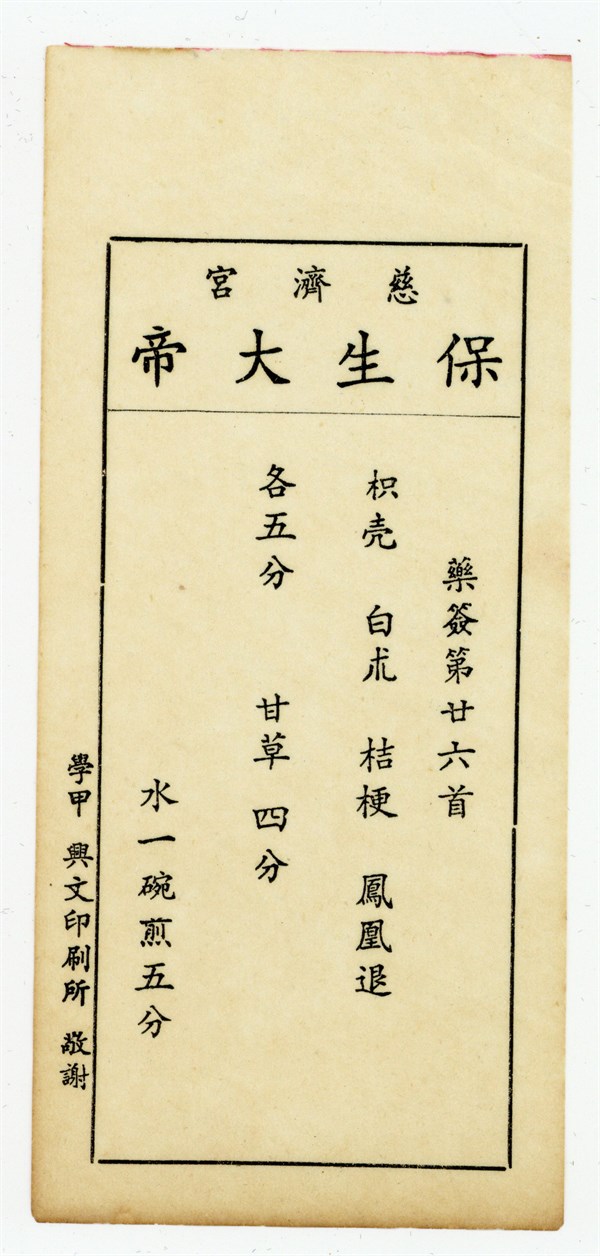 慈濟宮
保生大帝
藥簽第廿六首
枳壳 白朮 桔梗 鳳凰退
各五分 甘草 四分
水一碗煎五分
學甲 興文印刷所 敬謝